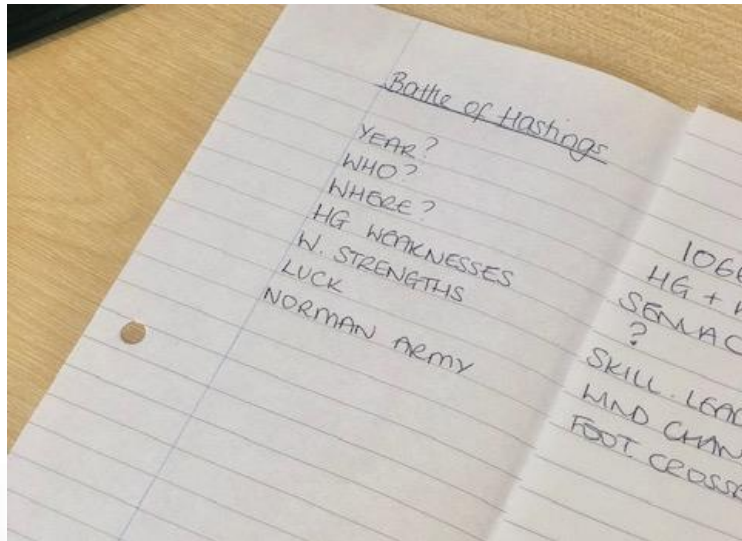 Battle of Hastings
YEAR?
WHO?
WHERE?
HG WEAKNESSES
W. STRENGTHS
LUCK
NORMAN ARMY
1066
HG +
SENLAC
?
SKILL. LEAD
WIND CHAN
FOOT. CROSSB